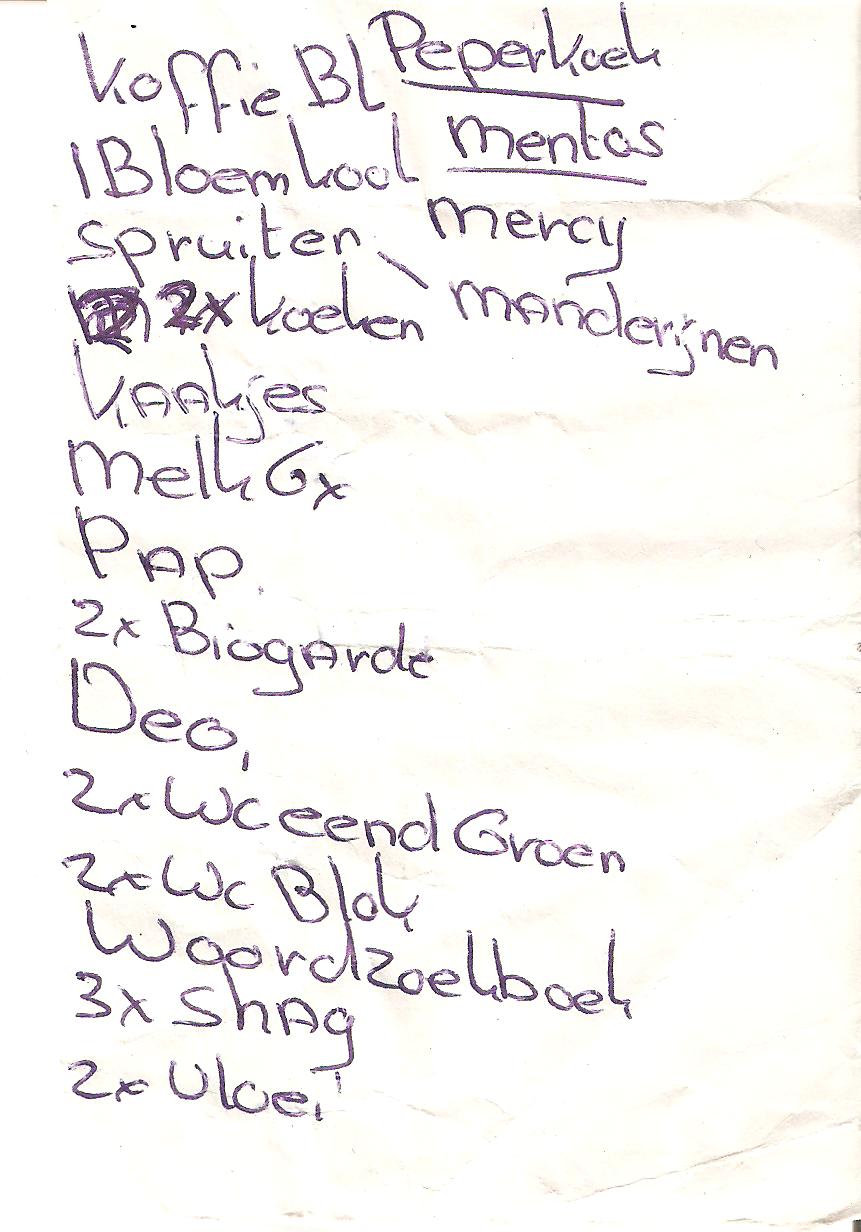 Koffie BL
Peperkoek
1 Bloemkool
mentos
Spruiten
mercy
2x koeken
mAnderijnen
KAAkjes
Melk 6x
PAp
2x BiogArde
Deo,
2x Wc eend Groen
2x Wc Blok
Woordzoekboek
3x ShAg
2x Vloei